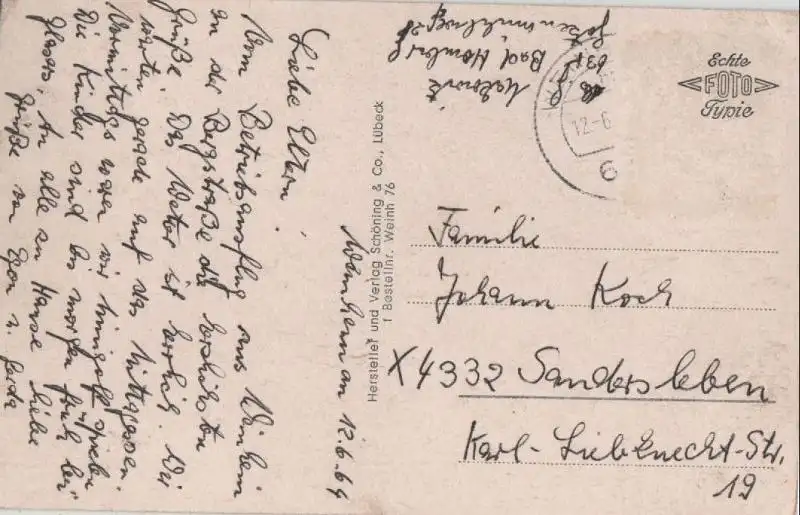 Weinheim am 12.6.69
Liebe Eltern!
Vom Betriebsausflug aus Weinheim
an der Bergstraße die herzlichsten
Grüße. Das Wetter ist herrlich. Wir
warten gerade auf das Mittagessen.
Vormittags waren wir Minigolf spielen
Die Kinder sind bis morgen früh bei
An alle zu Hause liebe
Grüße von Egon u. Gerda
Hersteller und Verlag Schöning & Co., Lübeck
1 Bestellnr. Weinh 76
Makowitz
Bad Homburg
Echte
FOTO
Typie
12-6
6
Familie
Johann Koch
X4332 Sandersleben
Karl-Liebknecht-Str.
19